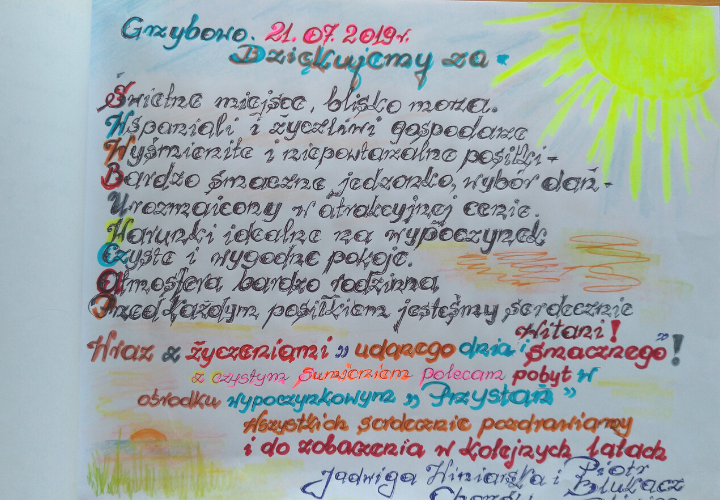 Grzybowo. 21.07.2019r.
Dziękujemy za
Świetne miejsce, blisko morza.
Wspaniali i życzliwi gospodarze
Wyśmienite i niepowtarzalne posiłki -
Bardzo smaczne jedzonko, wybór dań -
Urozmaicony w atrakcyjnej cenie.
Warunki idealne na wypoczynek
Czyste i wygodne pokoje.
Atmosfera bardzo rodzinna
Przed każdym posiłkiem jesteśmy serdecznie
witani!
Wraz z życzeniami „udanego dnia i smacznego”!
z czystym sumieniem polecam pobyt w
ośrodku wypoczynkowym „Przystań”
Wszystkich serdecznie pozdrawiamy
i do zobaczenia w kolejnych latach
Jadwiga Winiarska i Piotr
Blukacz